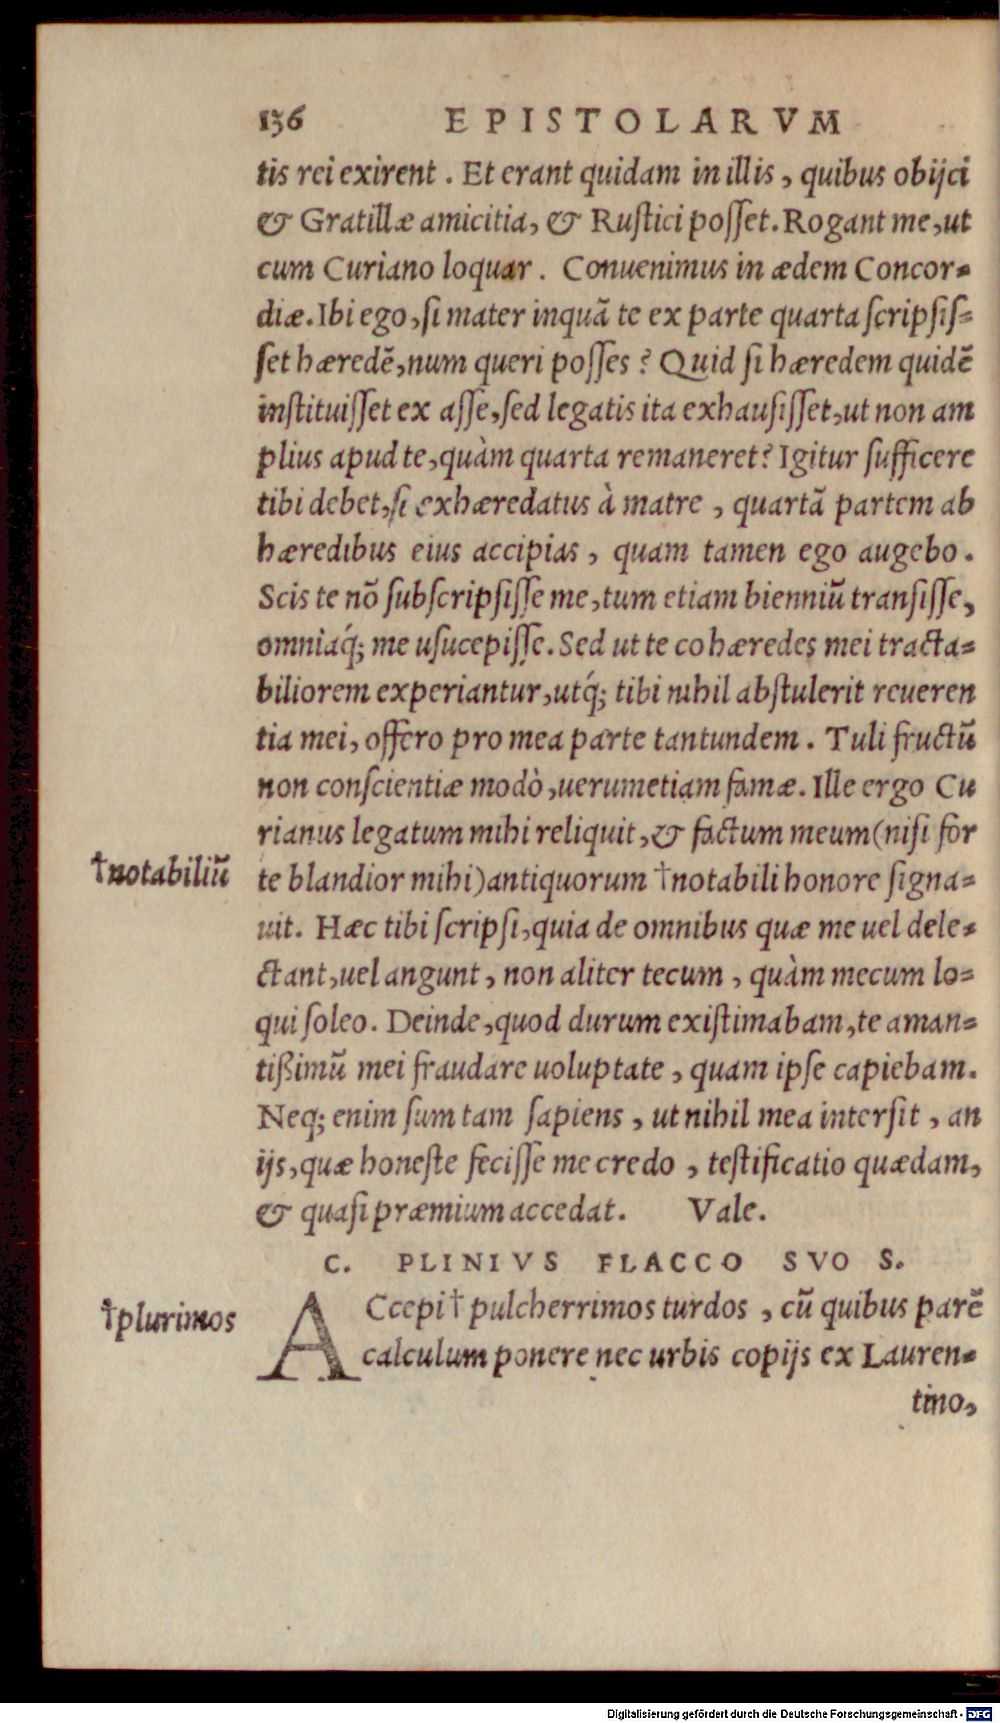 136 EPISTOLARVM
tis rei exirent. Et erant quidam in illis, quibus obijci
& Gratillæ amicitia, & Rustici posset. Rogant me, ut
cum Curiano loquar. Conuenimus in ædem Concor-
diæ. Ibi ego, si mater inquã te ex parte quarta scripsis-
set hæredẽ, num queri posses? Quid si hæredem quidẽ
instituisset ex asse, sed legatis ita exhausisset, ut non am
plius apud te, quàm quarta remaneret? Igitur sufficere
tibi debet, si exhæredatus à matre, quartã partem ab
hæredibus eius accipias, quam tamen ego augebo.
Scis te nõ subscripsisse me, tum etiam bienniũ transisse,
omniaq́; me usucepisse. Sed ut te cohæredes mei tracta-
biliorem experiantur, utq́; tibi nihil abstulerit reueren
tia mei, offero pro mea parte tantundem. Tuli fructũ
non conscientiæ modò, uerumetiam famæ. Ille ergo Cu
rianus legatum mihi reliquit, & factum meum (nisi for
†notabiliũ
te blandior mihi) antiquorum †notabili honore signa-
uit. Hæc tibi scripsi, quia de omnibus quæ me uel dele-
ctant, uel angunt, non aliter tecum, quàm mecum lo-
qui soleo. Deinde, quod durum existimabam, te aman-
tißimũ mei fraudare uoluptate, quam ipse capiebam.
Neq; enim sum tam sapiens, ut nihil mea intersit, an
ijs, quæ honeste fecisse me credo, testificatio quædam,
& quasi præmium accedat. Vale.
C. PLINIVS FLACCO SVO S.
†plurimos
ACcepi † pulcherrimos turdos, cũ quibus parẽ
calculum ponere nec urbis copijs ex Lauren-
tino,
Digitalisierung gefördert durch die Deutsche Forschungsgemeinschaft - DFG